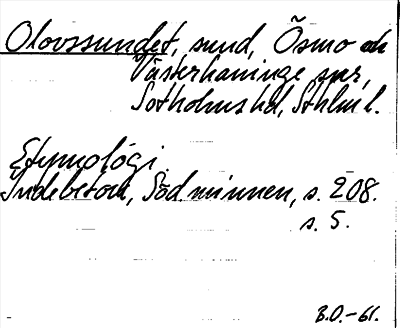 Olovssundet, sund, Ösmo och
Västerhaninge snr,
Sotholms hd, Sthlm l.
Etymologi.
Indebetou, Söd. minnen, s. 208.
s. 5.
B.O.-61.